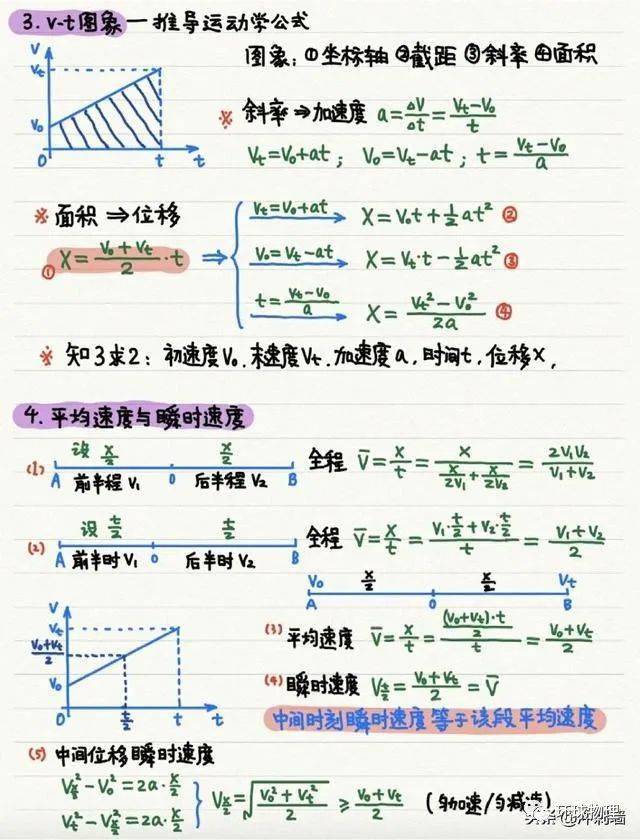 3. v-t图象—推导运动学公式
图象: ①坐标轴 ②截距 ③斜率 ④面积
V
Vt
V₀
0
t
t
※ 斜率⇒加速度 a=ΔV/Δt=(Vt-V₀)/t
Vt=V₀+at; V₀=Vt-at; t=(Vt-V₀)/a
※ 面积⇒位移
① X=(V₀+Vt)/2·t ⇒
Vt=V₀+at → X=V₀t+½at² ②
V₀=Vt-at → X=Vt·t-½at² ③
t=(Vt-V₀)/a → X=(Vt²-V₀²)/2a ④
※ 知3求2: 初速度V₀.末速度Vt.加速度a,时间t,位移X,
4. 平均速度与瞬时速度
(1) 设 x/2 x/2
A 前半程 V₁ 0 后半程 V₂ B
全程 V̄=x/t=x/(x/2V₁+x/2V₂)=2V₁V₂/(V₁+V₂)
(2) 设 t/2 t/2
A 前半时 V₁ 0 后半时 V₂ B
全程 V̄=x/t=(V₁·t/2+V₂·t/2)/t=(V₁+V₂)/2
V₀ x/2 x/2 Vt
A 0 B
V
Vt
(V₀+Vt)/2
V₀
0
t/2
t
t
(3) 平均速度 V̄=x/t=((V₀+Vt)·t/2)/t=(V₀+Vt)/2
(4) 瞬时速度 V t/2=(V₀+Vt)/2=V̄
中间时刻瞬时速度等于该段平均速度
(5) 中间位移瞬时速度
V x/2²-V₀²=2a·x/2
Vt²-V x/2²=2a·x/2
V x/2=√((V₀²+Vt²)/2) ≥ (V₀+Vt)/2 (匀加速/匀减速)
环球物理
头条@冲刺墙